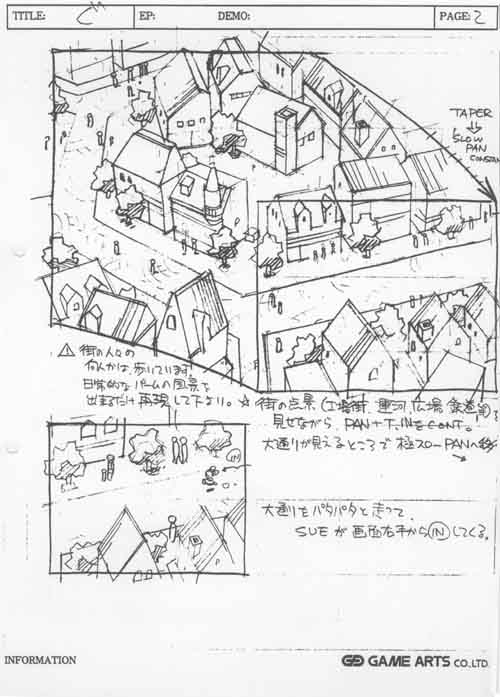 TITLE: EP: DEMO: PAGE: 2
TAPER
SLOW
PAN
街の人々の
何人かは、歩いています!
日常的なパームの風景を
出来るだけ再現して下さい。
☆ 街の点景(工場街、運河、広場、鉄道等)を
見せながら、PAN+T.INをCONT.
大通りが見えるところで極スローPANへ移
IN
大通りをパタパタと走って、
SUEが画面右手からINしてくる。
INFORMATION
GAME ARTS CO.,LTD.